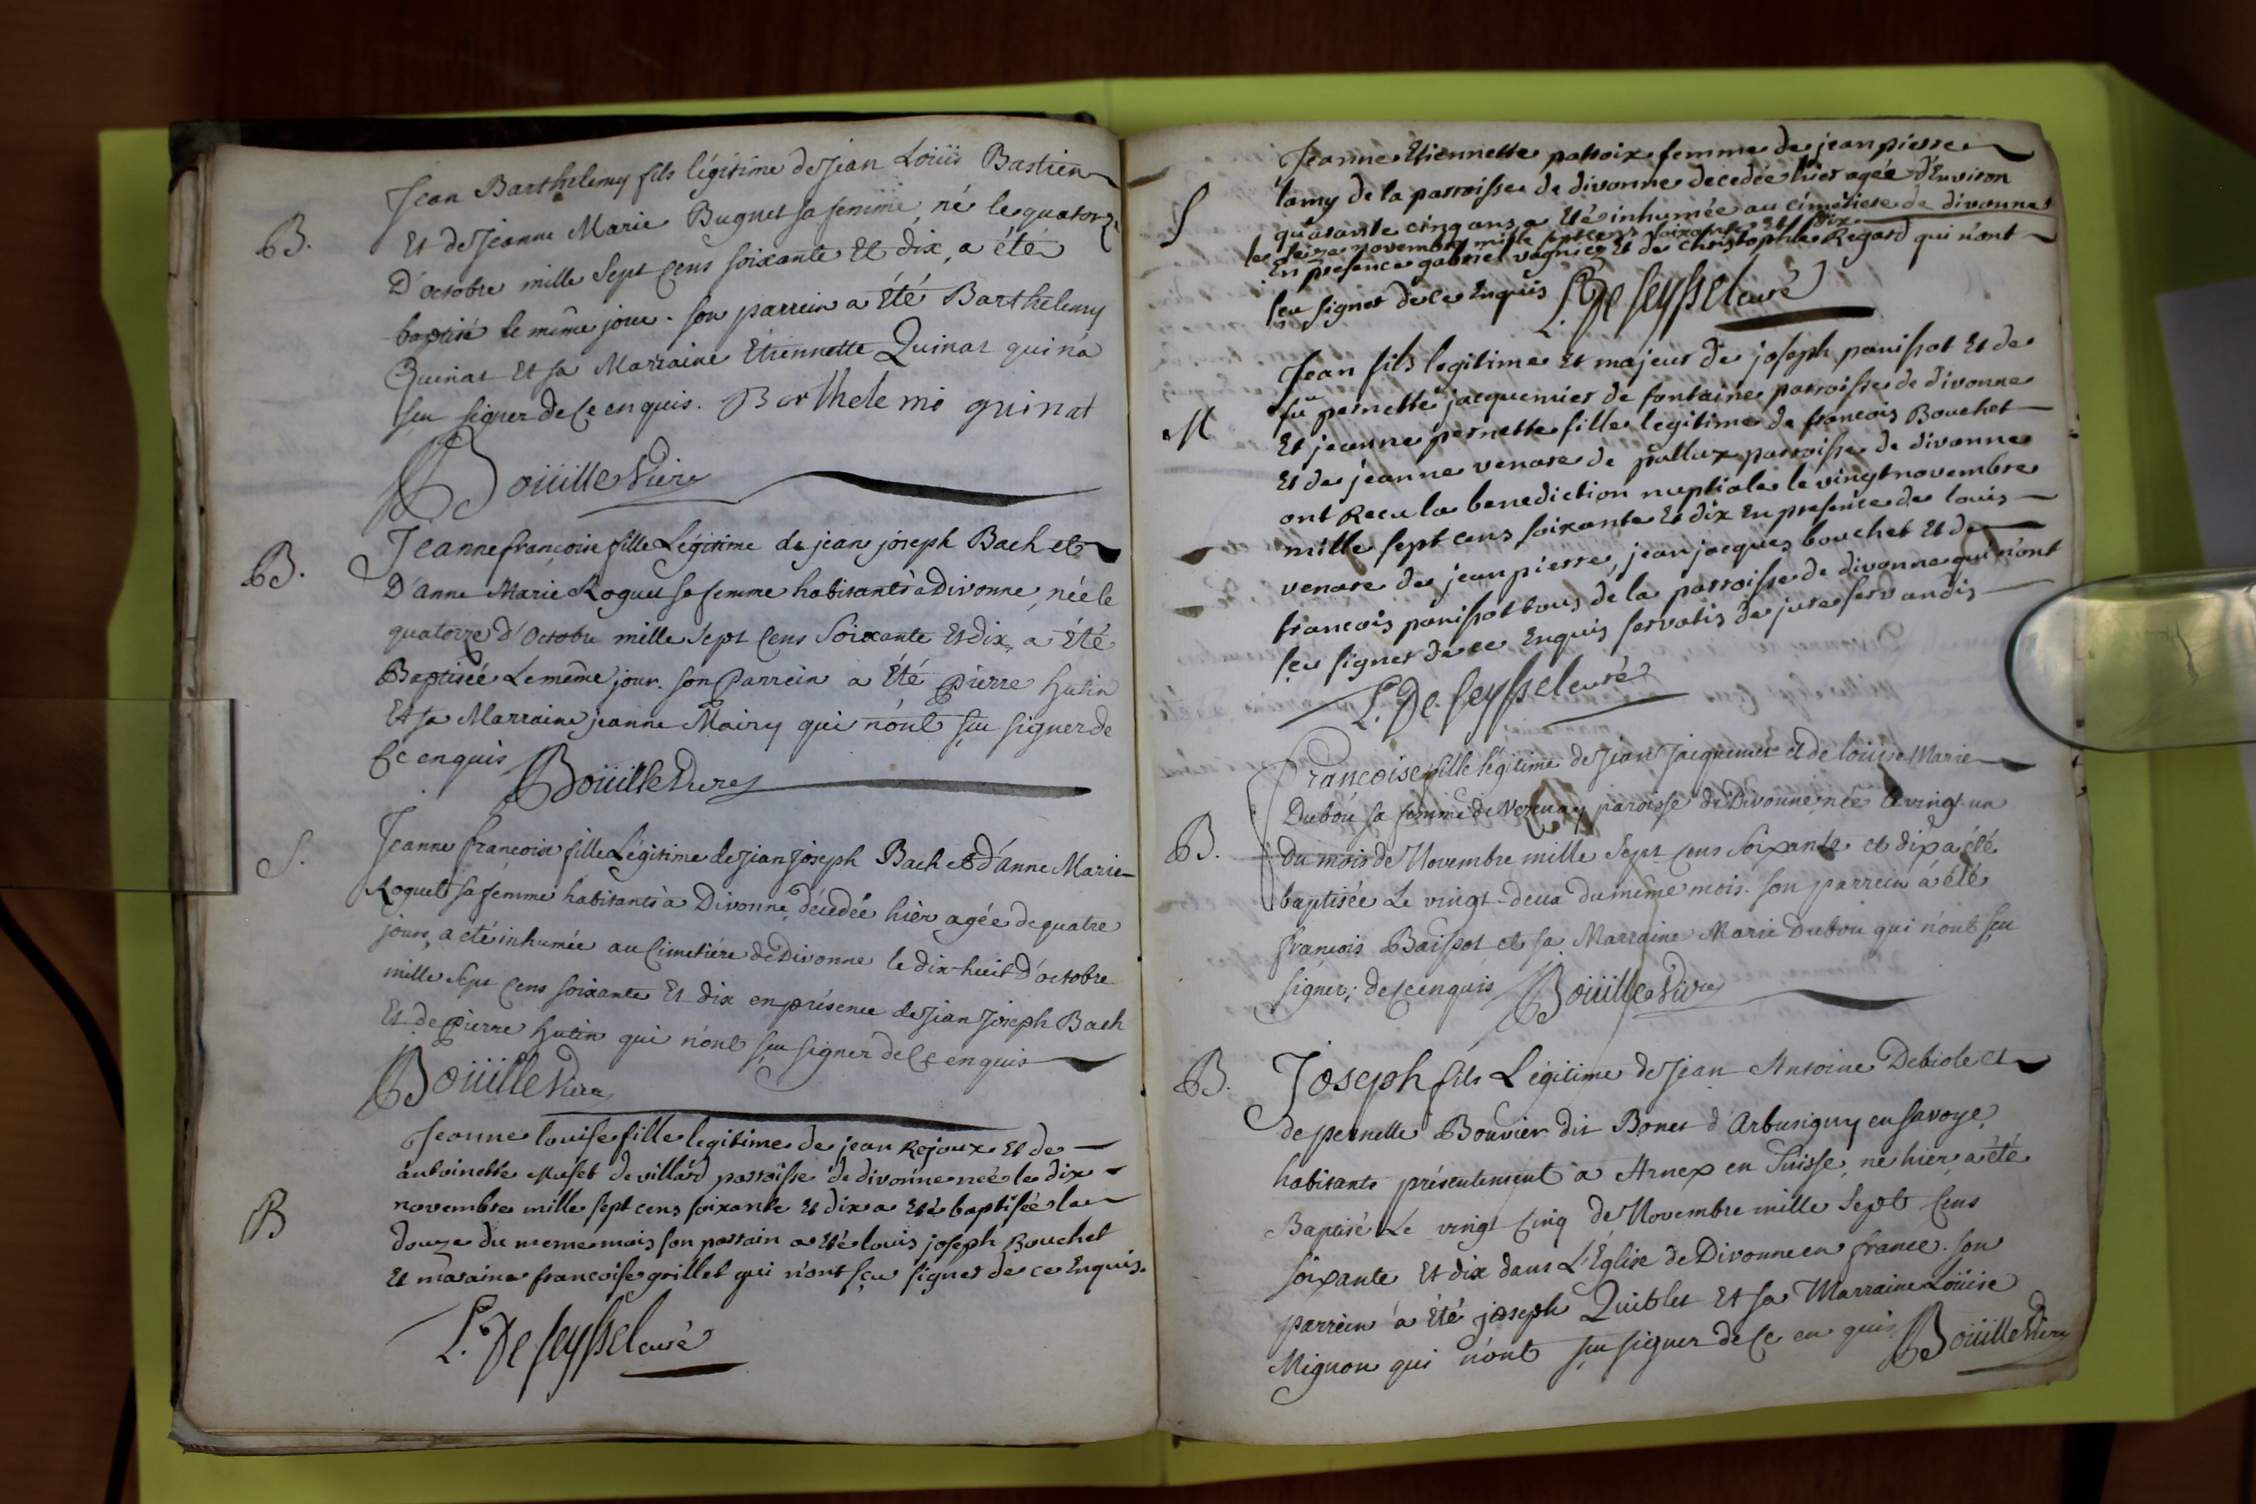 Jean Barthelemy fils légitime de Jean Loüis Bastien
B.
Et de Jeanne Marie Bugnet sa femme, né le quatorze
D'octobre mille Sept Cens soixante Et dix, a été
baptisé le même jour. son parrein a Eté Barthelemy
Quinat Et sa Marraine Etiennette Quinat qui n'a
sçu signer de Ce enquis. Barthelemi quinat
Boüille Vicre
Jeanne françoise fille Légitime de jean joseph Bach et
B.
D'anne Marie Roguet sa femme habitants à Divonne, née le
quatorze d'Octobre mille Sept Cens Soixante Et dix, a Eté
Baptisée Le même jour. son Parrein a Eté Pierre hutin
Et sa Marraine jeanne Mairy qui n'ont sçu signer de
Ce enquis Boüille Vicre
Jeanne françoise fille Légitime de Jean Joseph Bach et d'Anne Marie
S.
Roguet sa femme habitants à Divonne, décédée hier agée de quatre
jours, a été inhumée au Cimetière de Divonne le dix-huit d'octobre
mille Sept Cens soixante Et dix en présence de Jean Joseph Bach
Et de Pierre hutin qui n'ont sçu signer de Ce enquis
Boüille Vicre
Jeanne louise fille legitime de jean Rojoux Et de
antoinette Muset de villard parroisse de divonne née le dix
B
novembre mille sept cens soixante Et dix a Eté baptisée le
douze du meme mois son parrain a Eté louis joseph Bouchet
Et maraine francoise grillet qui n'ont sçu signer de ce Enquis.
L. De Seyssel curé
Jeanne Etiennette parroix femme de jean pierre
S
lamy de la parroisse de divonne decedée hier agée d'Environ
quarante cinq ans a Eté inhumée au cimetiere de divonne
le seize novembre mille sept cens soixante Et dix
En presence gabriel vagnier Et de christophle Regard qui n'ont
sçu signer de ce Enquis L. De Seyssel curé
Jean fils legitime Et majeur de joseph panissot Et de
fû pernette jacquemier de fontaine parroisse de divonne
M
Et jeanne pernette fille legitime de francois Bouchet
Et de jeanne venare de pallux parroisse de divonne
ont Recu la benediction nuptiale le vingt novembre
mille sept cens soixante Et dix En presence de louis
venare de jean pierre, jean jacques bouchet Et de
francois panissot tous de la parroisse de divonne qui n'ont
sçu signer de ce Enquis servatis de jure servandis
L. De Seyssel curé
Francoise fille légitime de Jean Jacquemier et de loüise Marie
Duboü sa femme de Vezenay paroisse de Divonne née le vingt-un
B.
du mois de Novembre mille Sept Cens Soixante et dix a été
baptisée Le vingt-deux du même mois. son parrein a été
françois Baissot et sa Marraine Marie Duboü qui n'ont sçu
signer; de Ce enquis Boüille Vicre
B.
Joseph fils Légitime de Jean Antoine Debiole et
de pernette Bouvier dit Bonet d'Arbusigny en Savoye,
habitants présentement à Arnex en Suisse, né hier, a été
Baptisé Le vingt Cinq de Novembre mille Sept Cens
soixante Et dix dans L'Église de Divonne en france. son
parrein a été joseph Quiblet Et sa Marraine Loüise
Mignon qui n'ont sçu signer de Ce enquis Boüille Vicre